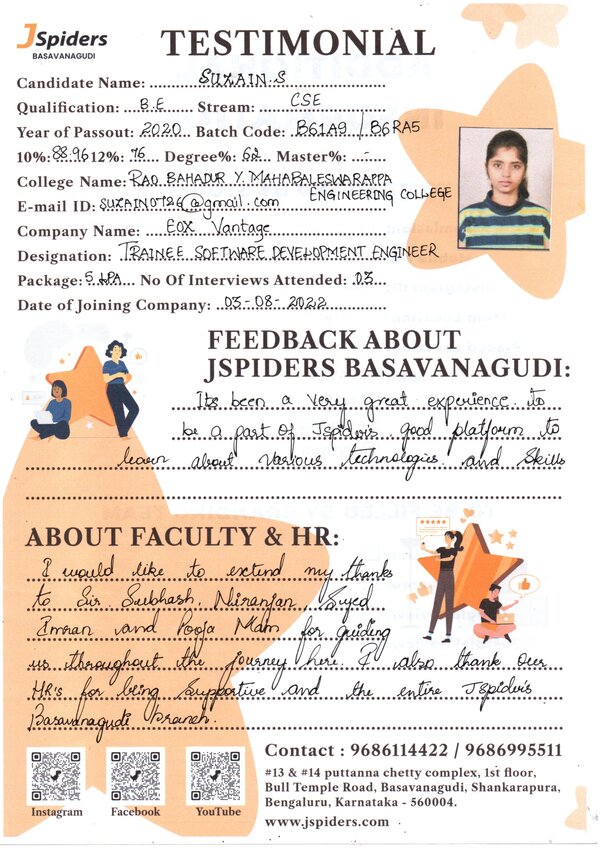 JSpiders
BASAVANAGUDI
TESTIMONIAL
Candidate Name: SUZAIN.S
Qualification: B.E Stream: CSE
Year of Passout: 2020 Batch Code: B61A9 / B6RA5
10%: 88.96 12%: 76 Degree%: 62 Master%: -
College Name: RAO BAHADUR Y. MAHABALESWARAPPA
ENGINEERING COLLEGE
E-mail ID: suzain0726@gmail.com
Company Name: EOX Vantage
Designation: TRAINEE SOFTWARE DEVELOPMENT ENGINEER
Package: 5 LPA No Of Interviews Attended: 03
Date of Joining Company: 03-08-2022
FEEDBACK ABOUT
JSPIDERS BASAVANAGUDI:
Its been a very great experience. To
be a part of Jspider's good platform to
learn about various technologies and Skills
ABOUT FACULTY & HR:
I would like to extend my thanks
to Sir Subhash, Niranjan, Syed
Imran and Pooja Mam for guiding
us throughout the journey here. I also thank our
HR's for being Supportive and the entire Jspider's
Basavnagudi branch.
Contact : 9686114422 / 9686995511
#13 & #14 puttanna chetty complex, 1st floor,
Bull Temple Road, Basavanagudi, Shankarapura,
Bengaluru, Karnataka - 560004.
www.jspiders.com
Instagram Facebook YouTube